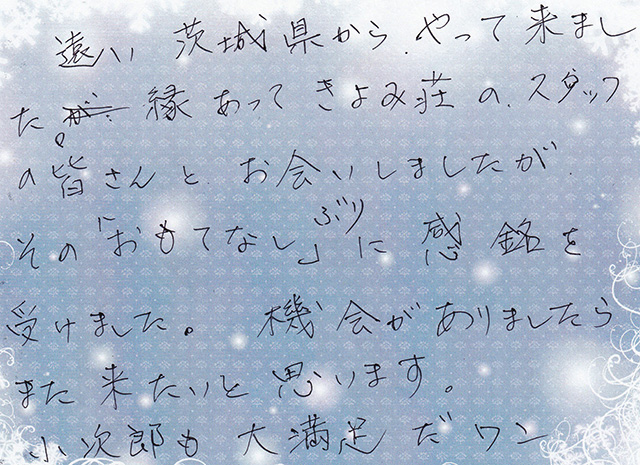 遠い 茨城県から、やって来まし
た。縁あって きよみ荘の、スタッフ
の皆さんと、お会いしましたが、
その「おもてなし」ぶりに 感銘を
受けました。 機会がありましたら
また 来たいと 思います。
小次郎も 大満足 だワン